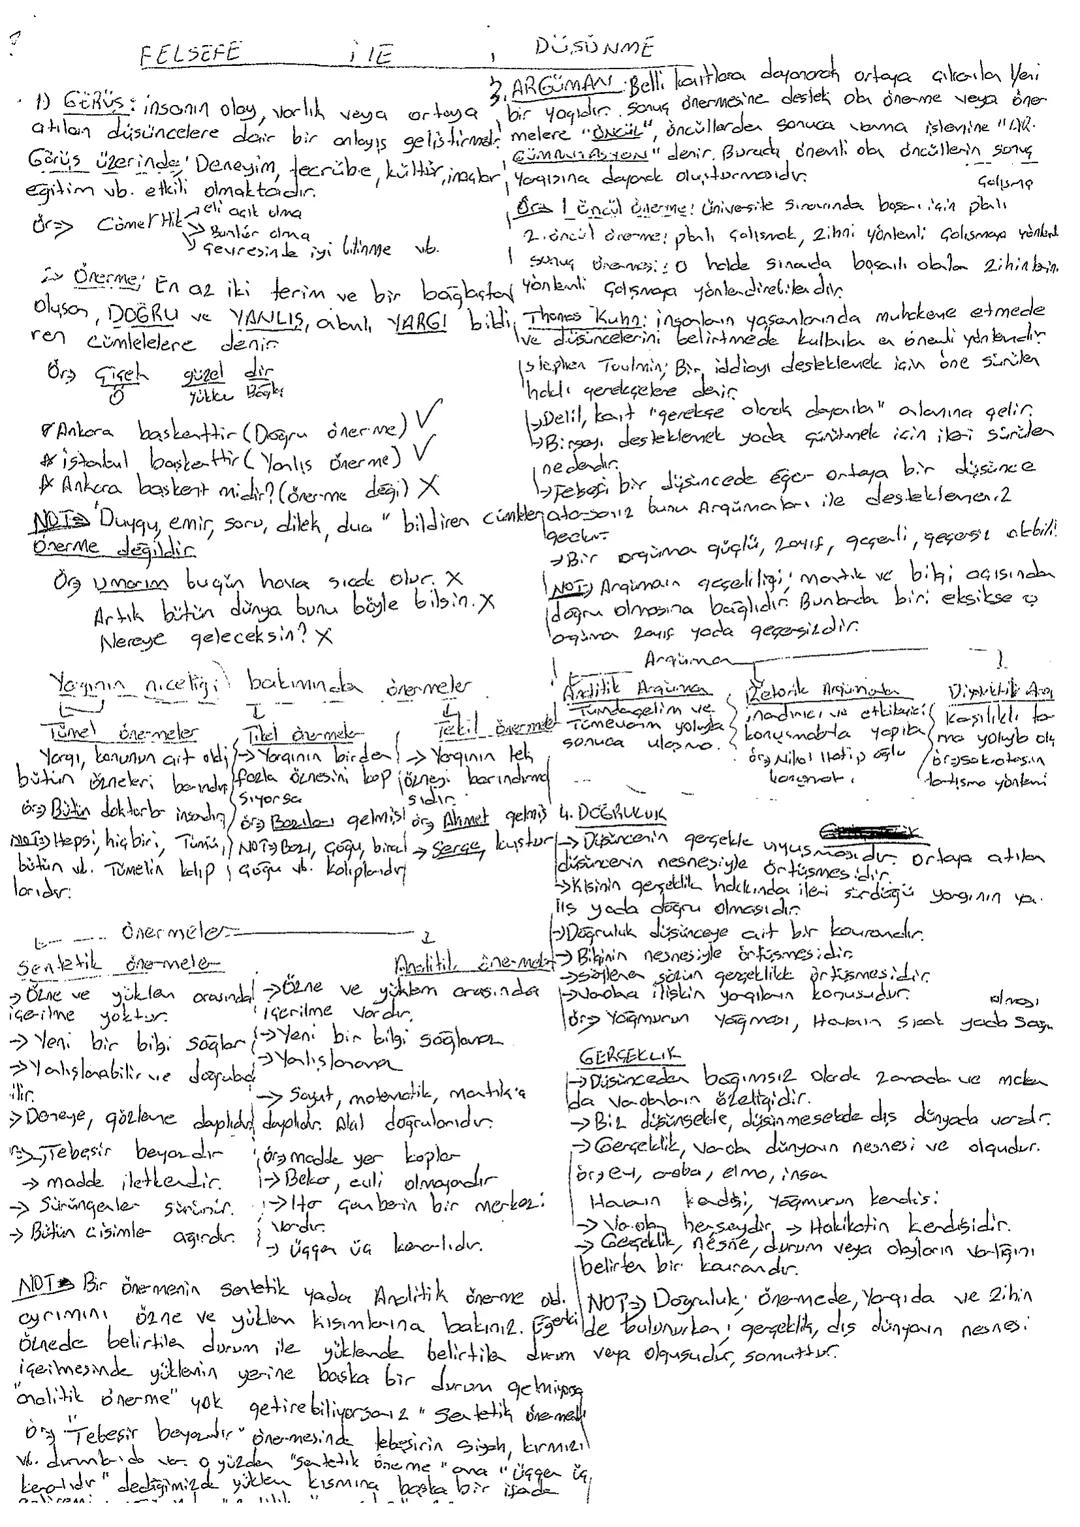 FELSEFE İLE DÜŞÜNME
1) GÖRÜŞ: insanın olay, varlık veya ortaya
atılan düşüncelere dair bir anlayış geliştirmek.
Görüş üzerinde; Deneyim, tecrübe, kültür, inançlar,
eğitim vb. etkili olmaktadır.
Ör=> Cömertlik → eli açık olma
→ Bunlar olma
→ Çevresinde iyi bilinme vb.
2-> Önerme; En az iki terim ve bir bağlaçtan
oluşan, DOĞRU ve YANLIŞ, olan, YARGI bildi
ren cümlelere denir
Ör> Çiçek güzel dir
Ö Yüklem Bağlaç
☆ Ankara başkenttir (Doğru önerme) ✓
☆ istanbul başkenttir (Yanlış önerme) ✓
☆ Ankara başkent midir? (önerme değil) X
NOT=> "Duygu, emir, soru, dilek, dua" bildiren cümleler
önerme değildir
Ör> umarım bugün hava sıcak olur. X
Artık bütün dünya bunu böyle bilsin. X
Nereye geleceksin? X
Yargının niceliği bakımından önermeler
Tümel önermeler
Yargı, konunun ait oldj
bütün özneleri barındırır
ör> Bütün doktorlar insandır
NOT=> Hepsi, hiçbiri, Tümü,
bütün vb. Tümelin kalıp
larıdır.
Tikel önermeler
→ Yargının birden
fazla öznesini kap
sıyorsa
ör> Bazıları gelmişti
NOT=> Bazı, çoğu, birçok
çoğu vb. kalıplarıdır
Tekil önermeler
→ Yargının tek
özneyi barındırma
sıdır.
ör> Ahmet gelmiş
→ Serçe, kuştur
Önermeler
Sentetik önermeler
→ Özne ve yüklem arasında
içerilme yoktur.
→ Yeni bir bilgi sağlar
→ Yanlışlanabilir ve doğrulanab
ilir.
→ Deneye, gözleme dayalıdır
=> Tebeşir beyazdır
→ madde iletkendir.
→ Sürüngenler sürünür.
→ Bütün cisimler ağırdır.
Analitik önermeler
→ Özne ve yüklem arasında
içerilme vardır.
→ Yeni bir bilgi sağlamaz
→ Yanlışlanamaz
→ Soyut, matematik, mantık'a
dayalıdır. Akıl doğrularıdır.
ör> madde yer kaplar
→ Bekar, evli olmayandır
→ Her çemberin bir merkezi
vardır.
→ üçgen üç kenarlıdır.
NOT=> Bir önermenin sentetik yada Analitik önerme old.
ayrımını özne ve yüklem kısımlarına bakınız. Eğerki
öznede belirtilen durum ile yüklemde belirtilen durum
içerilmesinde yüklemin yerine başka bir durum gelmiyorsa
"analitik önerme" yok getirebiliyorsanız "sentetik önermedir
ör> "Tebeşir beyazdır" önermesinde tebeşirin siyah, kırmızı
vb. durumları da var. o yüzden "sentetik önerme" ama "üçgen üç
kenarlıdır" dediğimizde yüklem kısmına başka bir ifade
3. ARGÜMAN: Belli kanıtlara dayanarak ortaya çıkarılan Yeni
bir yargıdır. sonuç önermesine destek olan önerme veya öner
melere "ÖNCÜL", öncüllerden sonuca varma işlemine "AR
GÜMANTASYON" denir. Burada önemli olan öncüllerin sonuç
yargısına dayanak oluşturmasıdır.
Ör> 1 öncül önerme: üniversite sınavında başarı için planlı çalışma
2. öncül önerme: planlı çalışmak, zihni yönlenli çalışmaya yönlend
sonuç önermesi: o halde sınavda başarılı olanlar zihinlerin
yönlenli çalışmaya yönlendirebilenlerdir.
Thomas Kuhn: insanların yaşamlarında muhakeme etmede
ve düşüncelerini belirtmede kullanılan en önemli yöntemdir
Stephen Toulmin; Bir, iddiayı desteklemek için öne sürülen
haklı gerekçelere denir.
→ Delil, kanıt "gerekçe olarak dayanılan" anlamına gelir.
→ Birşeyi desteklemek yada çürütmek için ileri sürülen
nedendir.
→ Felsefi bir düşüncede eğer ortaya bir düşünce
atarsanız bunu Argümanları ile desteklemeniz
gerekir.
→ Bir argüman güçlü, zayıf, geçerli, geçersiz olabilir
NOT=> Argümanın geçerliliği; mantık ve bilgi açısından
doğru olmasına bağlıdır. Bunlardan biri eksikse o
argüman zayıf yada geçersizdir.
Argüman
Analitik Argüman
Tümdengelim ve
Tümevarım yoluyla
sonuca ulaşma.
Retorik Argümanlar
inandırıcı ve etkileyici
konuşmalarla yapılan
ör> Nihal Hatipoğlu
konuşmalar.
Diyalektik Arg
karşılıklı tar
ma yoluyla olş
ör> sokratesin
tartışma yöntemi
4. DOĞRULUK
→ Düşüncenin gerçekle uyuşmasıdır. ortaya atılan
düşüncenin nesnesiyle örtüşmesidir.
→ Kişinin gerçeklik hakkında ileri sürdüğü yargının yan
lış yada doğru olmasıdır.
→ Doğruluk düşünceye ait bir kavramdır.
→ Bilginin nesnesiyle örtüşmesidir.
→ söylenen sözün gerçeklikle örtüşmesidir.
→ Varolana ilişkin yargıların konusudur.
ör> Yağmurun yağması, Havanın sıcak yada Soğu olması
GERÇEKLİK
→ Düşünceden bağımsız olarak zamanda ve mekan
da varolanların özelliğidir.
→ Biz düşünsekte, düşünmesekde dış dünyada vardır.
→ Gerçeklik, varolan dünyanın nesnesi ve olgudur.
ör> ev, araba, elma, insan
Havanın kendisi, Yağmurun kendisi
→ Varolan herşeydir, → Hakikatin kendisidir.
→ Gerçeklik, nesne, durum veya olayların varlığını
belirten bir kavramdır.
NOT=> Doğruluk; önermede, Yargıda ve zihin
de bulunurken; gerçeklik, dış dünyanın nesnesi
veya olgusudur, somuttur.